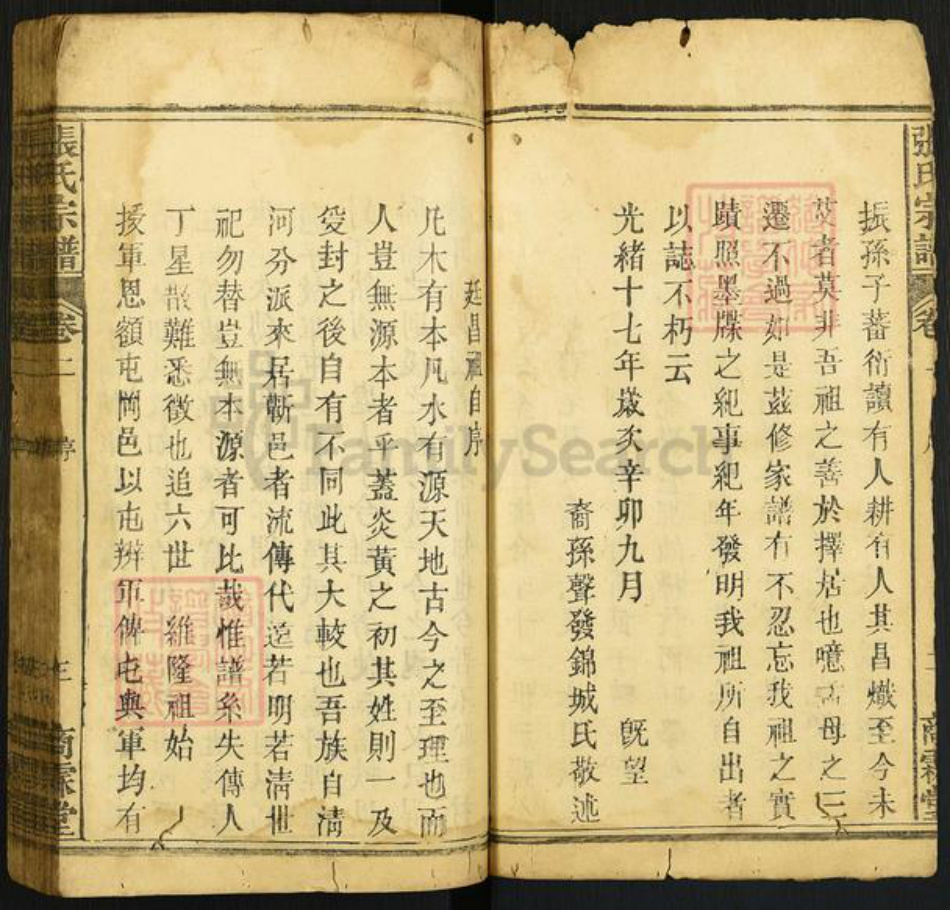 張氏宗譜
振孫子蕃衍讀有人耕有人其昌熾至今未
艾者莫非吾祖之善於擇居也噫孟母之三
遷不過如是茲修家譜有不忍忘我祖之實
蹟照墨牒之紀事紀年發明我祖所自出者
以誌不朽云
光緒十七年歲次辛卯九月 旣望
裔孫聲發錦城氏敬述
廷昌祖自序
凡木有本凡水有源天地古今之至理也而
人豈無源本者乎蓋炎黃之初其姓則一及
受封之後自有不同此其大較也吾族自清
河分派來居蘄邑者流傳代遠若明若清世
祀勿替豈無本源者可比哉惟譜系失傳人
丁星散難悉徵也追六世 維隆祖始
援軍恩額屯岡邑以屯辦軍俾屯與軍均有
張氏宗譜 卷 序 商霖堂
FamilySearch